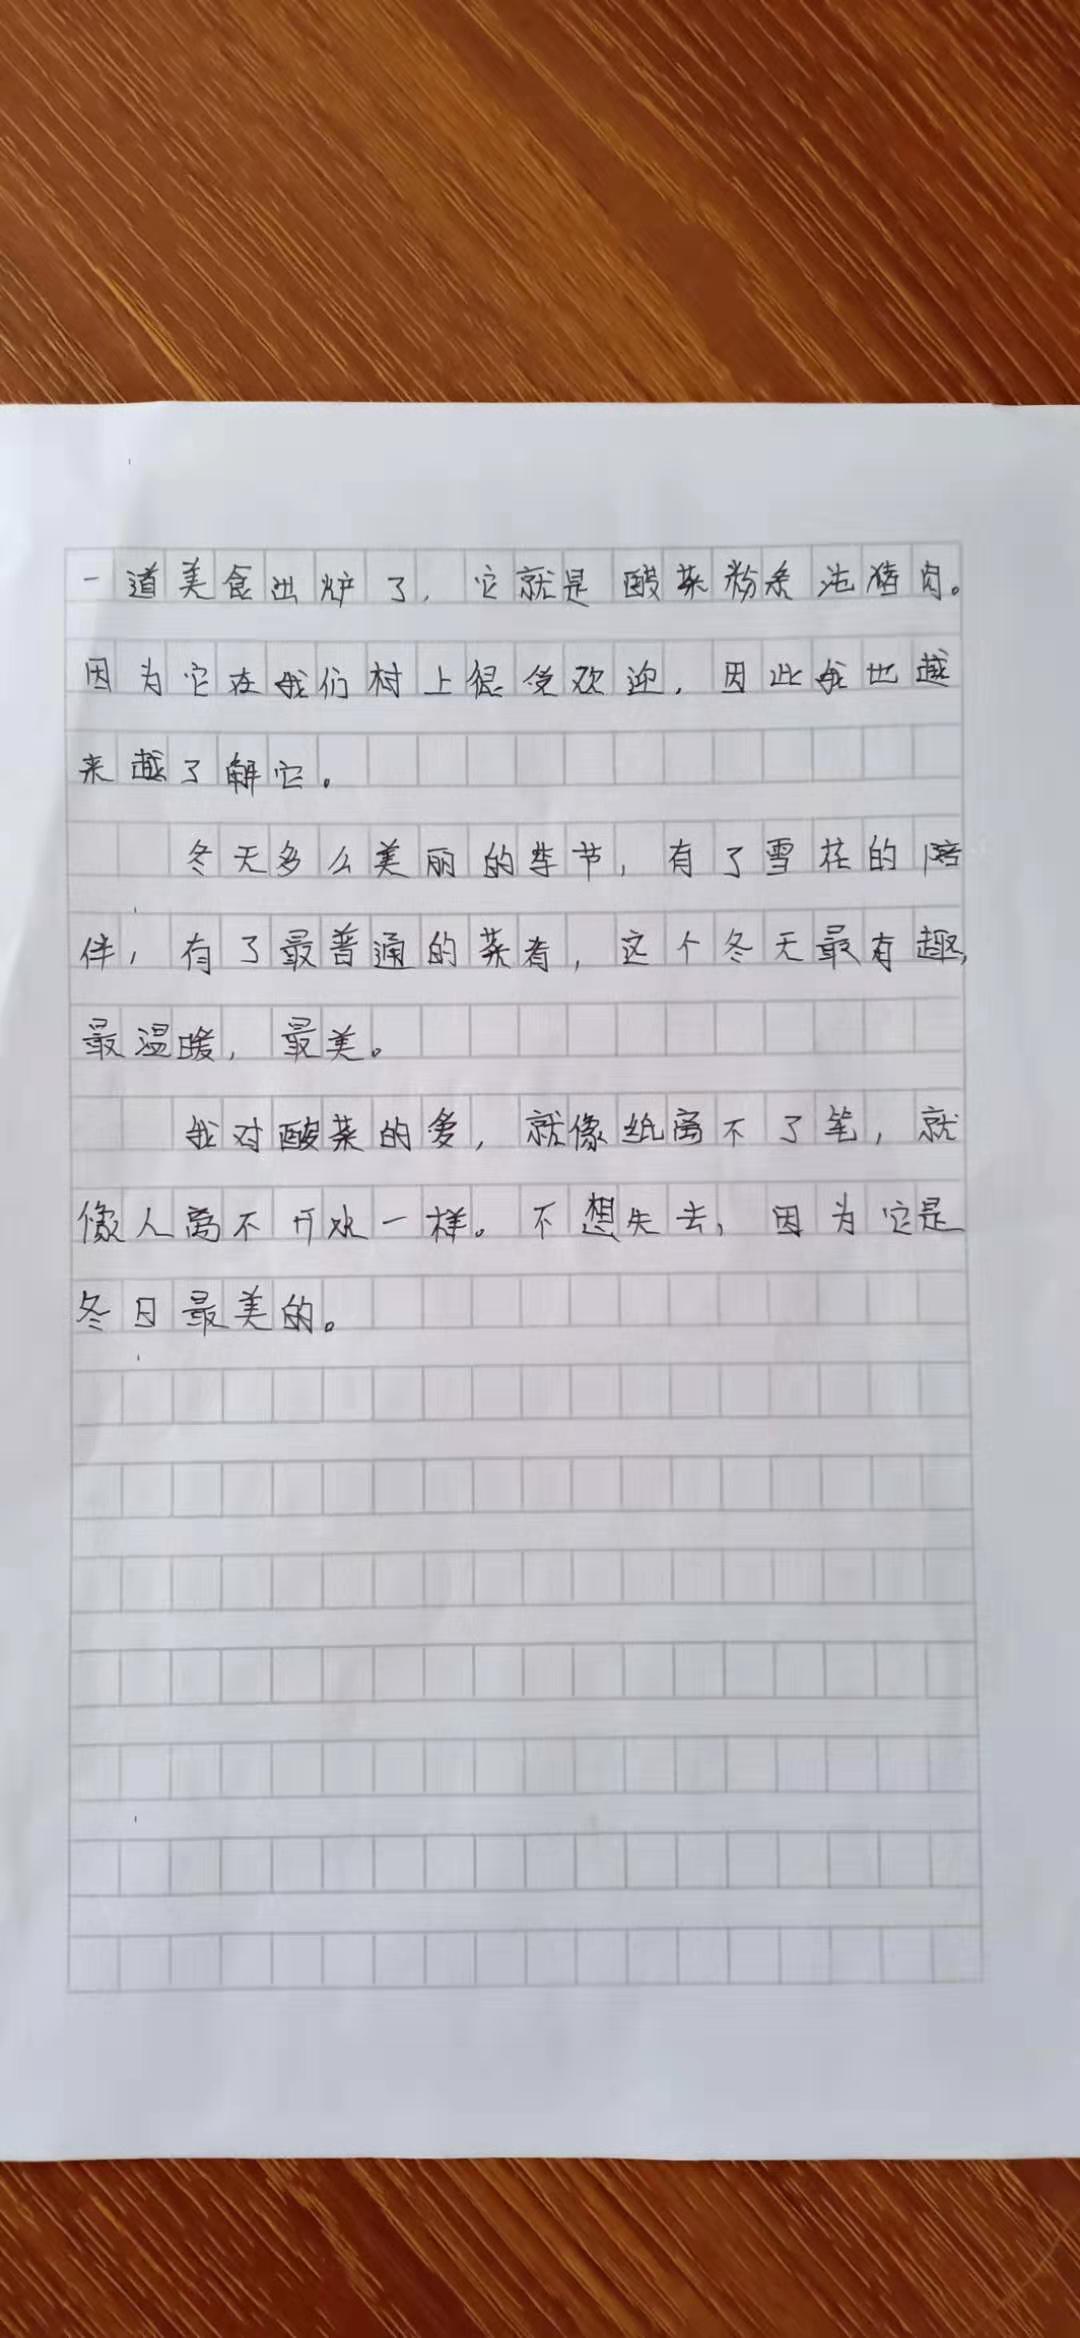 一道美食出炉了，它就是酸菜粉条炖猪肉。
因为它在我们村上很受欢迎，因此我也越
来越了解它。
冬天多么美丽的季节，有了雪花的陪
伴，有了最普通的菜肴，这个冬天最有趣，
最温暖，最美。
我对酸菜的爱，就像纸离不了笔，就
像人离不开水一样。不想失去，因为它是
冬日最美的。